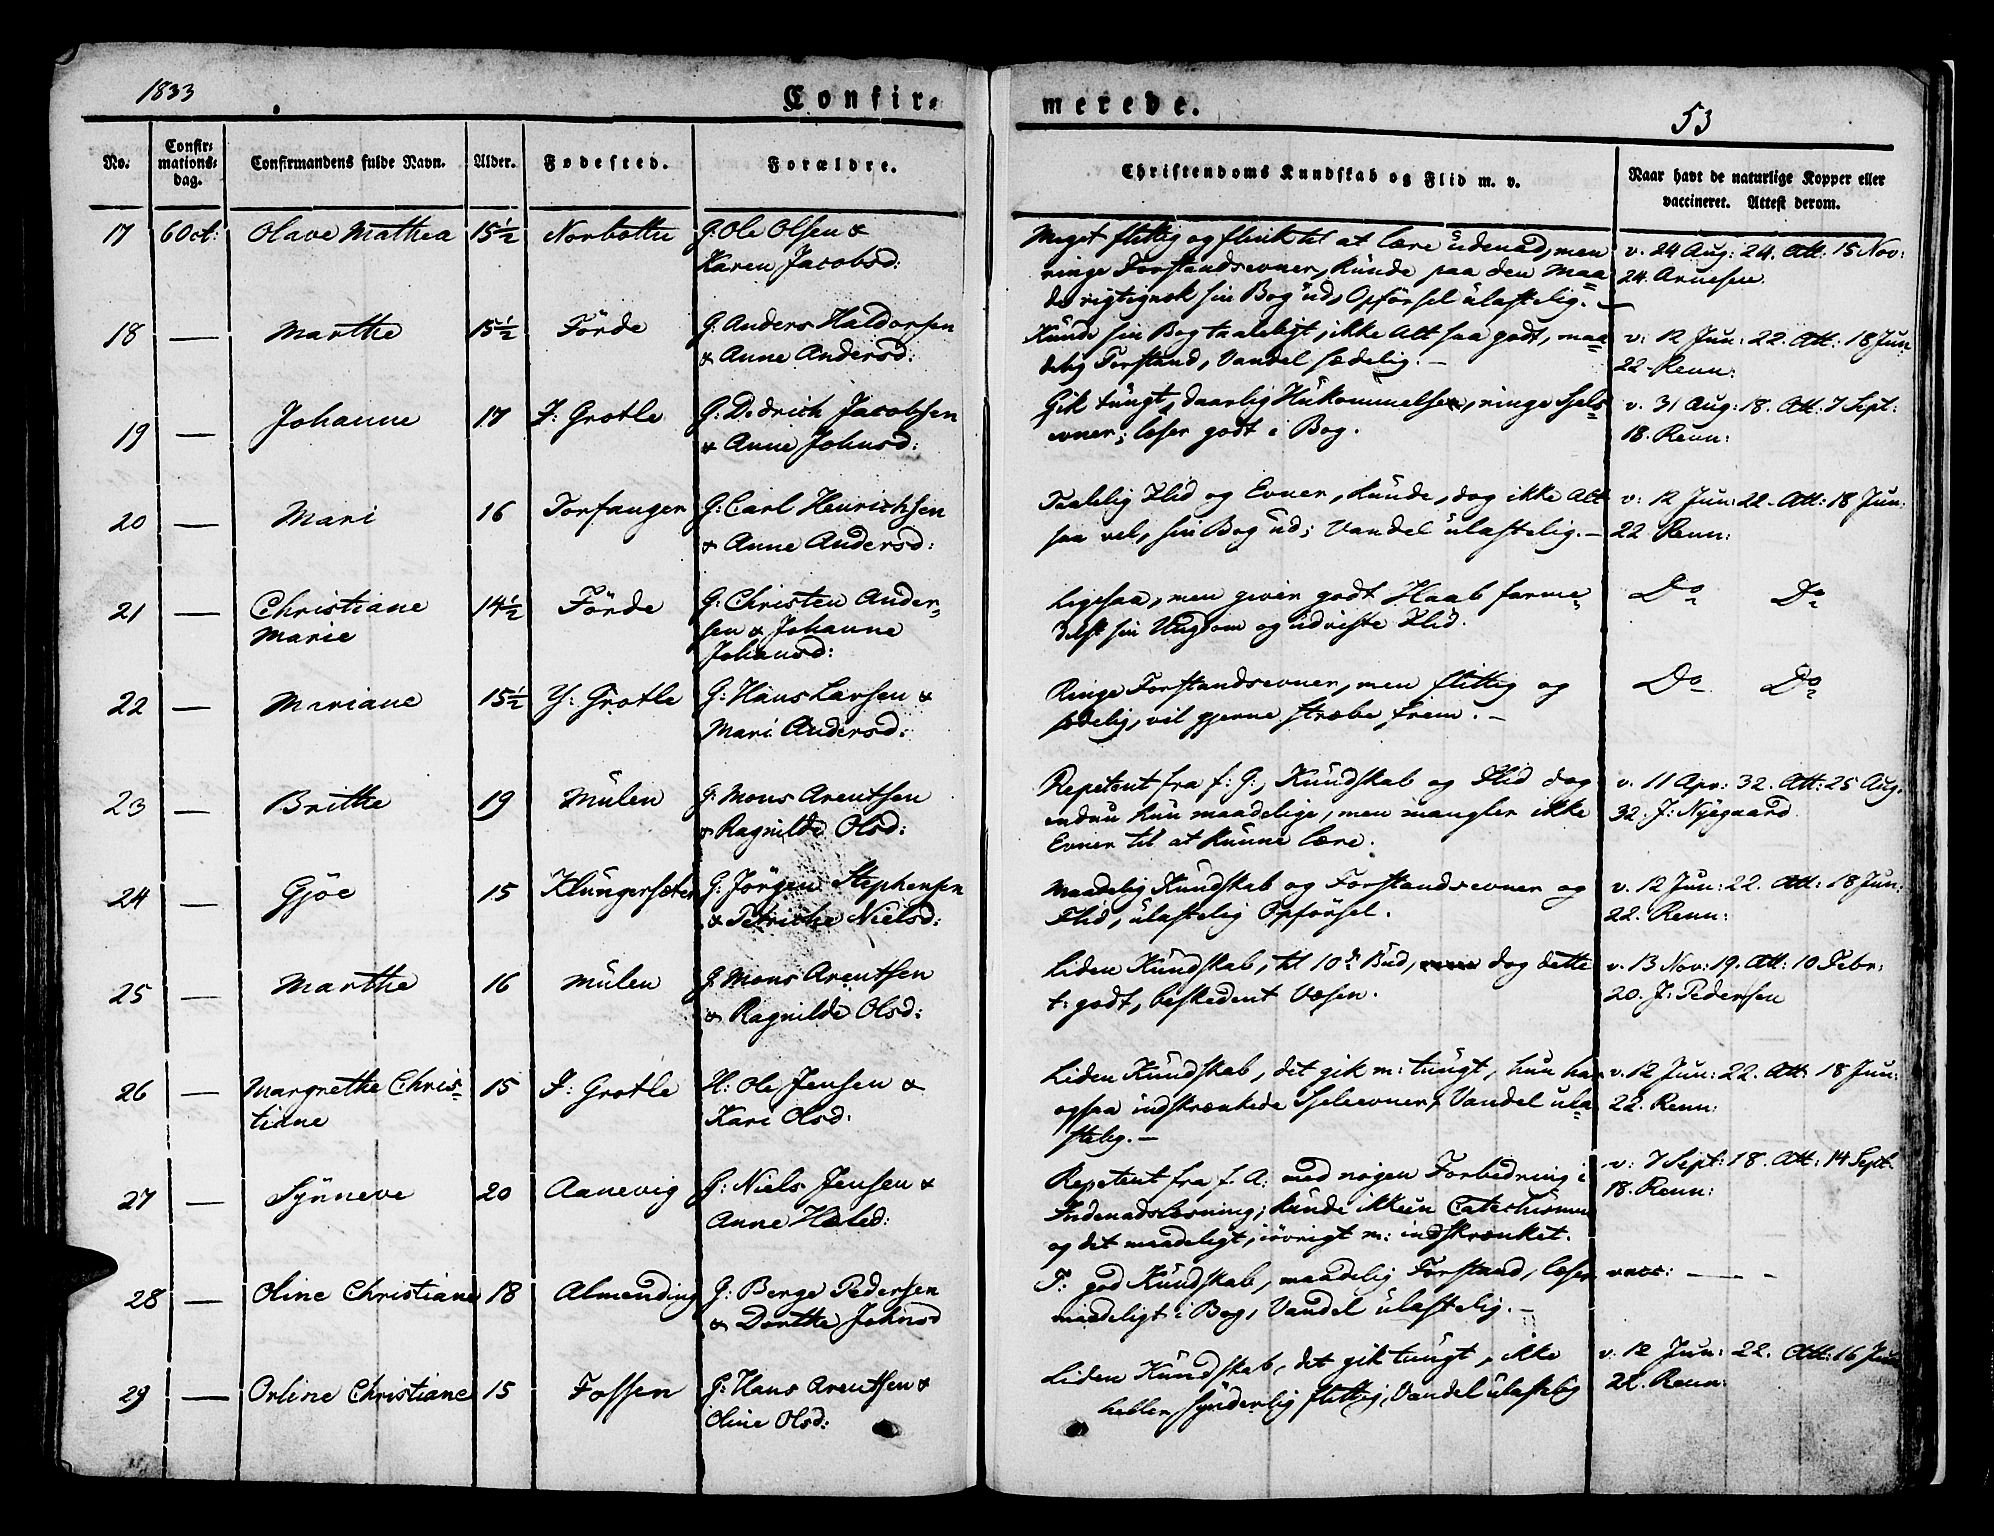 1833
Confir-
merede.
53
No.
Confir-
mations-
dag.
Confirmandens fulde Navn.
Alder.
Fødested.
Forældre.
Christendoms Kundskab og Flid m. v.
Naar havt de naturlige Kopper eller
vaccineret. Attest derom.
17 6 Oct: Olave Mathea 15½ Norbotten G: Ole Olsen &
Karen Jacobsd:
Meget flittig og flink til at lære udenad, men
ringe Forstandsevner, kunde paa den maa-
de rigtignok sin Bog ud, Opførsel ulastelig. –
v. 24 Aug: 24. Att: 15 Nov:
24. Arnesen
18 — Marthe 15½ Förde G: Anders Haldorsen
& Anne Andersd:
Kunde sin Bog taaleligt, ikke Alt saa godt, maa-
delig Forstand, Vandel sædelig. –
v: 12 Jun: 22. Att: 18 Jun:
22. Renn:
19 — Johanne 17 I: Grotle G: Didrich Jacobsen
& Anne Johnsd:
Gik tungt, daarlig Hukommelse, ringe Sjels-
evner; læser godt i Bog.
v. 31 Aug: 18. Att: 7 Sept:
18. Renn:
20 — Mari 16 Torfanger G: Carl Henrichsen
& Anne Andersd:
Taalelig Flid og Evner, kunde, dog ikke Alt
saa vel, sin Bog ud; Vandel ulastelig. –
v: 12 Jun: 22. Att: 18 Jun:
22 Renn:
21 — Christiane
Marie
14½ Förde G: Christen Ander-
sen & Johanne
Johansd:
Ligesaa, men giver godt Haab forme-
delst sin Ungdom og udviste Flid.
Do Do
22 — Mariane 15½ Y: Grotle G: Hans Larsen &
Mari Andersd:
Ringe Forstandsevner, men flittig og
sædelig, vil gjerne stræbe frem. –
Do Do
23 — Brithe 19 Mulen G: Mons Arentsen
& Ragnilde Olsd:
Repetent fra f: G:, Kundskab og Flid dog
endnu kun maadelige, men mangler ikke
Evner til at kunne lære.
v. 11 Apr: 32. Att: 25 Aug:
32. J: Nygaard
24 — Gjøe 15 Klungersæter G: Jörgen Stephensen
& Petriche Nielsd:
Maadelig Kundskab og Forstandsevner og
Flid, ulastelig Opførsel.
v. 12 Jun: 22. Att: 18 Jun:
22. Renn:
25 — Marthe 16 Mulen G: Mons Arentsen
& Ragnilde Olsd:
Liden Kundskab, til 10de Bud, dog dette
t: godt, beskedent Væsen.
v. 13 Nov: 19. Att: 10 Febr:
20. J: Pedersen
26 — Margrethe Chris-
tiane
15 I: Grotle H: Ole Jensen &
Kari Olsd:
Liden Kundskab, det gik m: tungt, hun har
ogsaa indskrænkede Sjeleevner, Vandel ula-
stelig. –
v. 12 Jun: 22. Att: 18 Jun:
22. Renn:
27 — Synneve 20 Aanevig G: Niels Jensen &
Anne Hælsd:
Repetent fra f. A: med nogen Forbedring i
Indenadslæsning; kunde ikkun Catechismus
og det maadeligt, iøvrigt m: indskrænket.
v: 7 Sept: 18. Att: 14 Sept.
18. Renn:
28 — Oline Christiane 18 Almending G: Berge Pedersen
& Dorthe Johnsd
T: god Kundskab, maadelig Forstand, læser
maadeligt i Bog, Vandel ulastelig. –
vacc: — — –
29 — Orline Christiane 15 Fossen G: Hans Arentsen &
Oline Olsd:
Liden Kundskab, det gik tungt, ikke
heller synderlig flittig, Vandel ulastelig
v: 12 Jun: 22. Att: 16 Jun
22. Renn: